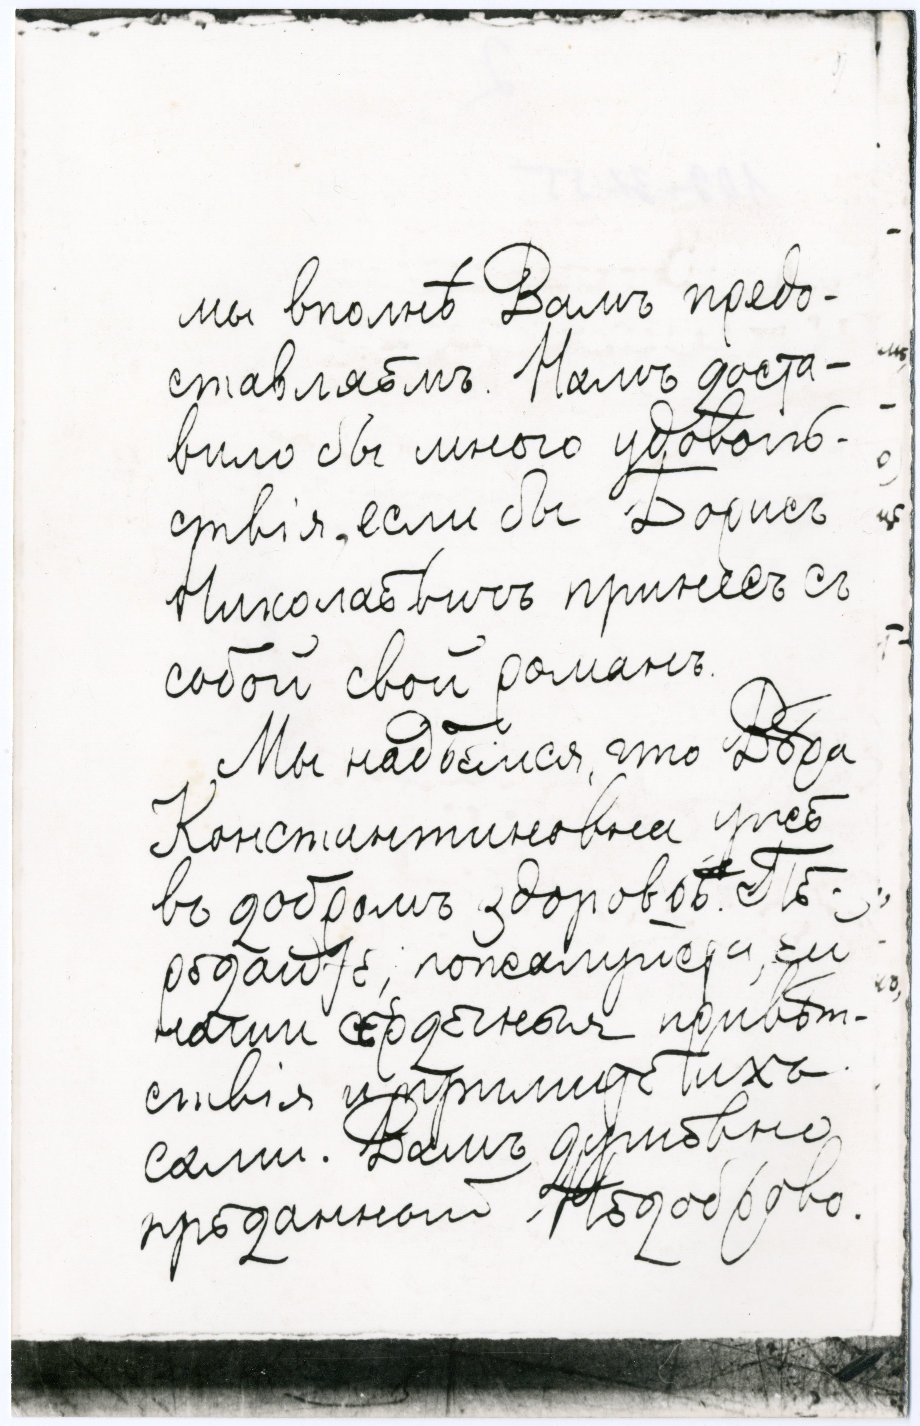 мы вполнѣ Вамъ предо-
ставляемъ. Намъ доста-
вило бы много удоволь-
ствія, если бы Борисъ
Николаевичъ принесъ съ
собой свой романъ.
Мы надѣемся, что Вѣра
Константиновна уже
въ добромъ здоровьѣ. Пе-
редайте, пожалуйста, ей
наши сердечныя привѣт-
ствія и примите ихъ
сами. Вамъ душевно
преданный Недоброво.